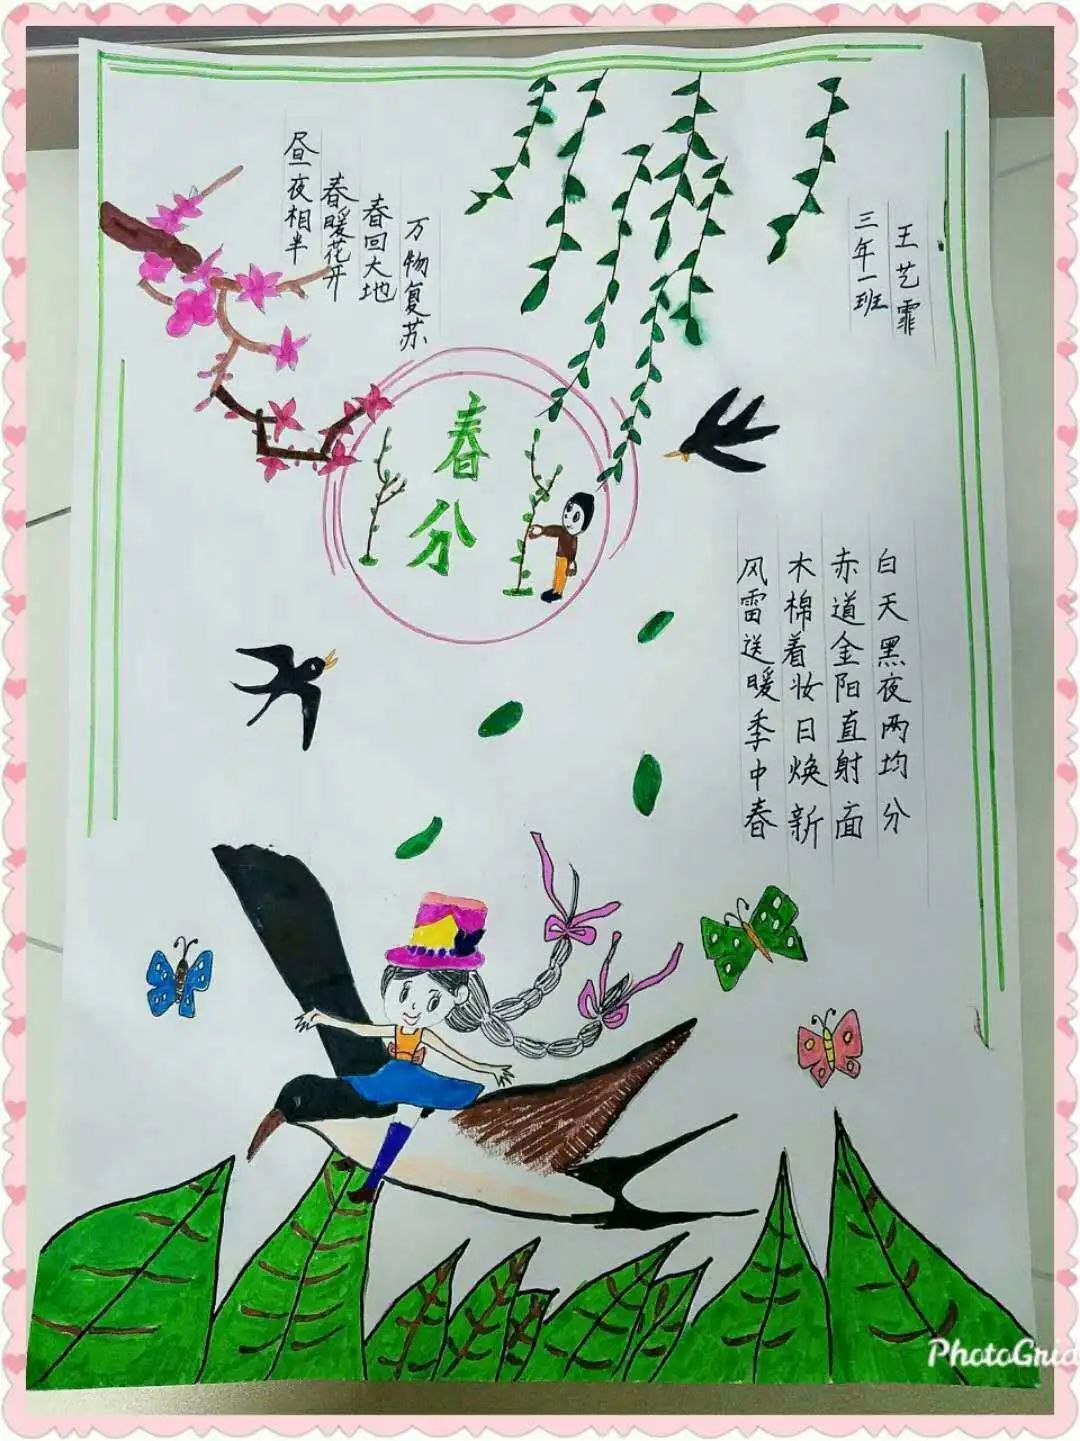 王艺霏
三年一班
万物复苏
春回大地
春暖花开
昼夜相半
春分
白天黑夜两均分
赤道金阳直射面
木棉着妆日焕新
风雷送暖季中春
PhotoGrid